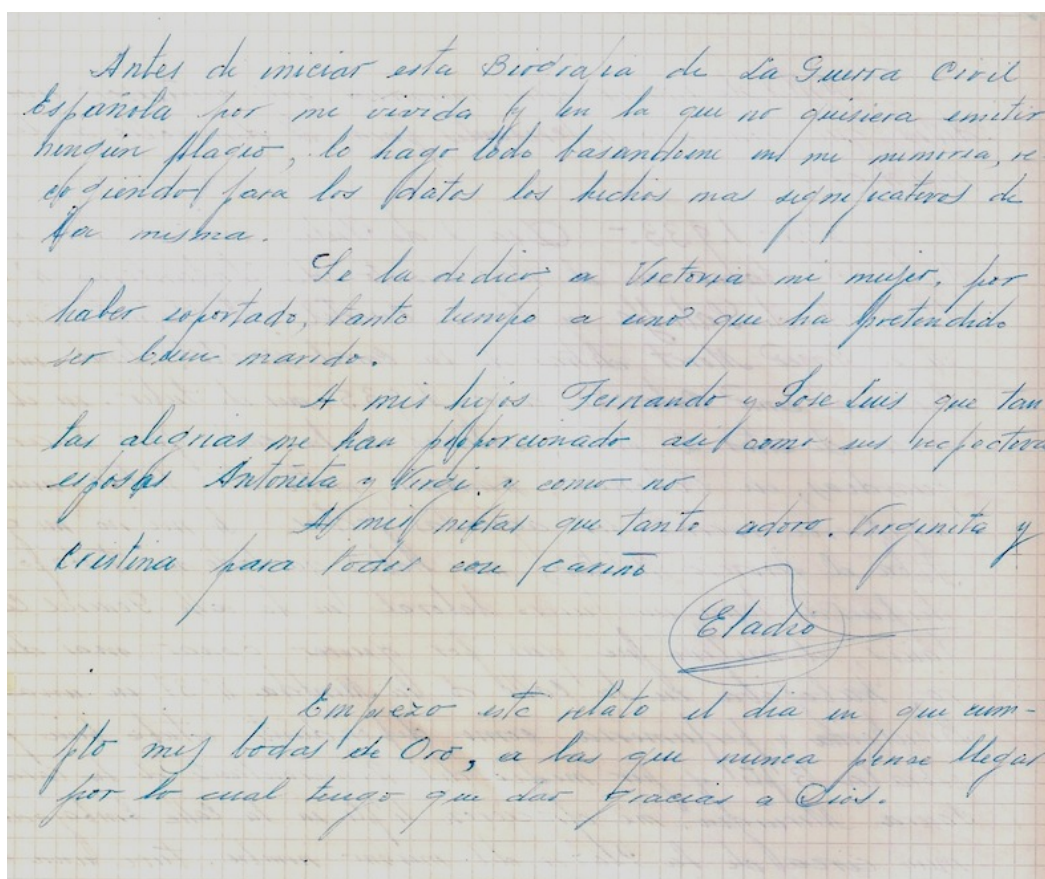 Antes de iniciar esta Biografia de La Guerra Civil
Española por mi vivida y en la que no quisiera emitir
ningun plagio, lo hago todo basandome en mi memoria, re-
cogiendo para los datos los hechos mas significativos de
la misma.
Se la dedico a Victoria mi mujer, por
haber soportado, tanto tiempo a uno que ha pretendido
ser buen marido.
A mis hijos Fernando y Jose Luis que tan
tas alegrias me han proporcionado asi como sus respectivas
esposas Antoñita y Virgi. y como no
A mis nietas que tanto adoro. Virginita y
Cristina para todas con cariño
Eladio
Empiezo este relato el dia en que cum-
plo mis bodas de Oro, a las que nunca pense llegar
por lo cual tengo que dar gracias a Dios.